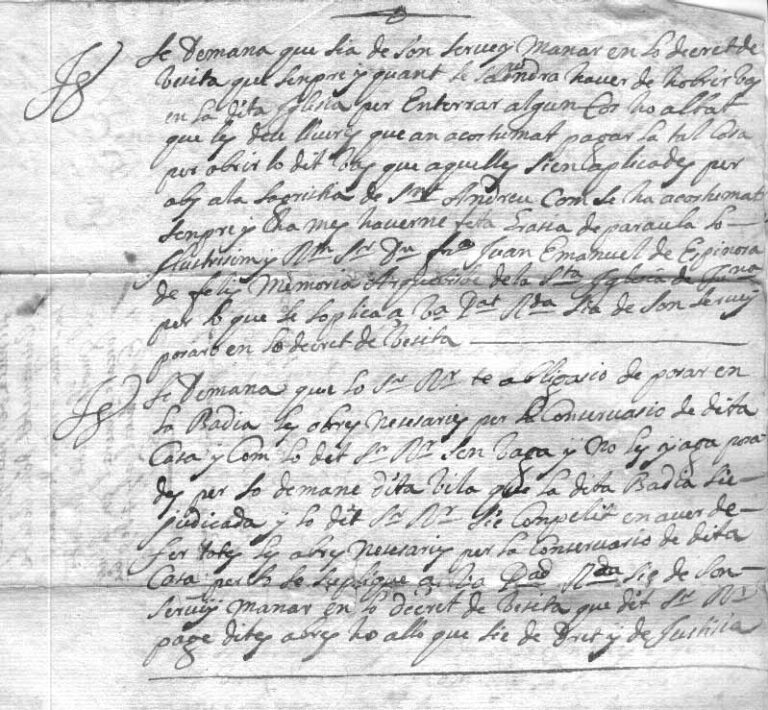 Se Demana que sia de son servey Manar en lo decret de
besita que senpre y quant se haura haver de hobrir bas
en la dita Iglesia per Enterrar algun Cos ho albat
que les deu lliures que an acostumat pagar la tal Casa
per obrir lo dit bas que aquelles sien aplicades per
obs a la sacristia de Snt Andreu Com se ha acostumat
senpre y cha mes haverne feta Grasia de paraula lo
Illustrisim y Rm Sr Dn fra Juan Emanuel de Espinosa
de felis Memoria Arquebisbe de la Sta Iglesia de Tgna
per lo que se soplica a Va Pat Rda sia de son servey
posaro en lo decret de besita
Se Demana que lo Sr Rr te obligasio de posar en
la Badia les obres nesesaries per la Conservasio de dita
Casa y Com lo dit Sr Rr sen baga y No les ajaga posa-
des per so demane dita vila que la dita Badia sie
judicada y lo dit Sr Rr sie Conpelit en aver de
fer totes les obres nesesaries per la Conservasio de dita
Casa per lo se suplique a Va Pad Rda sie de son
servey Manar en lo decret de besita que dit Sr Rr
page dites obres ho allo que sie de Dret y de Justisia